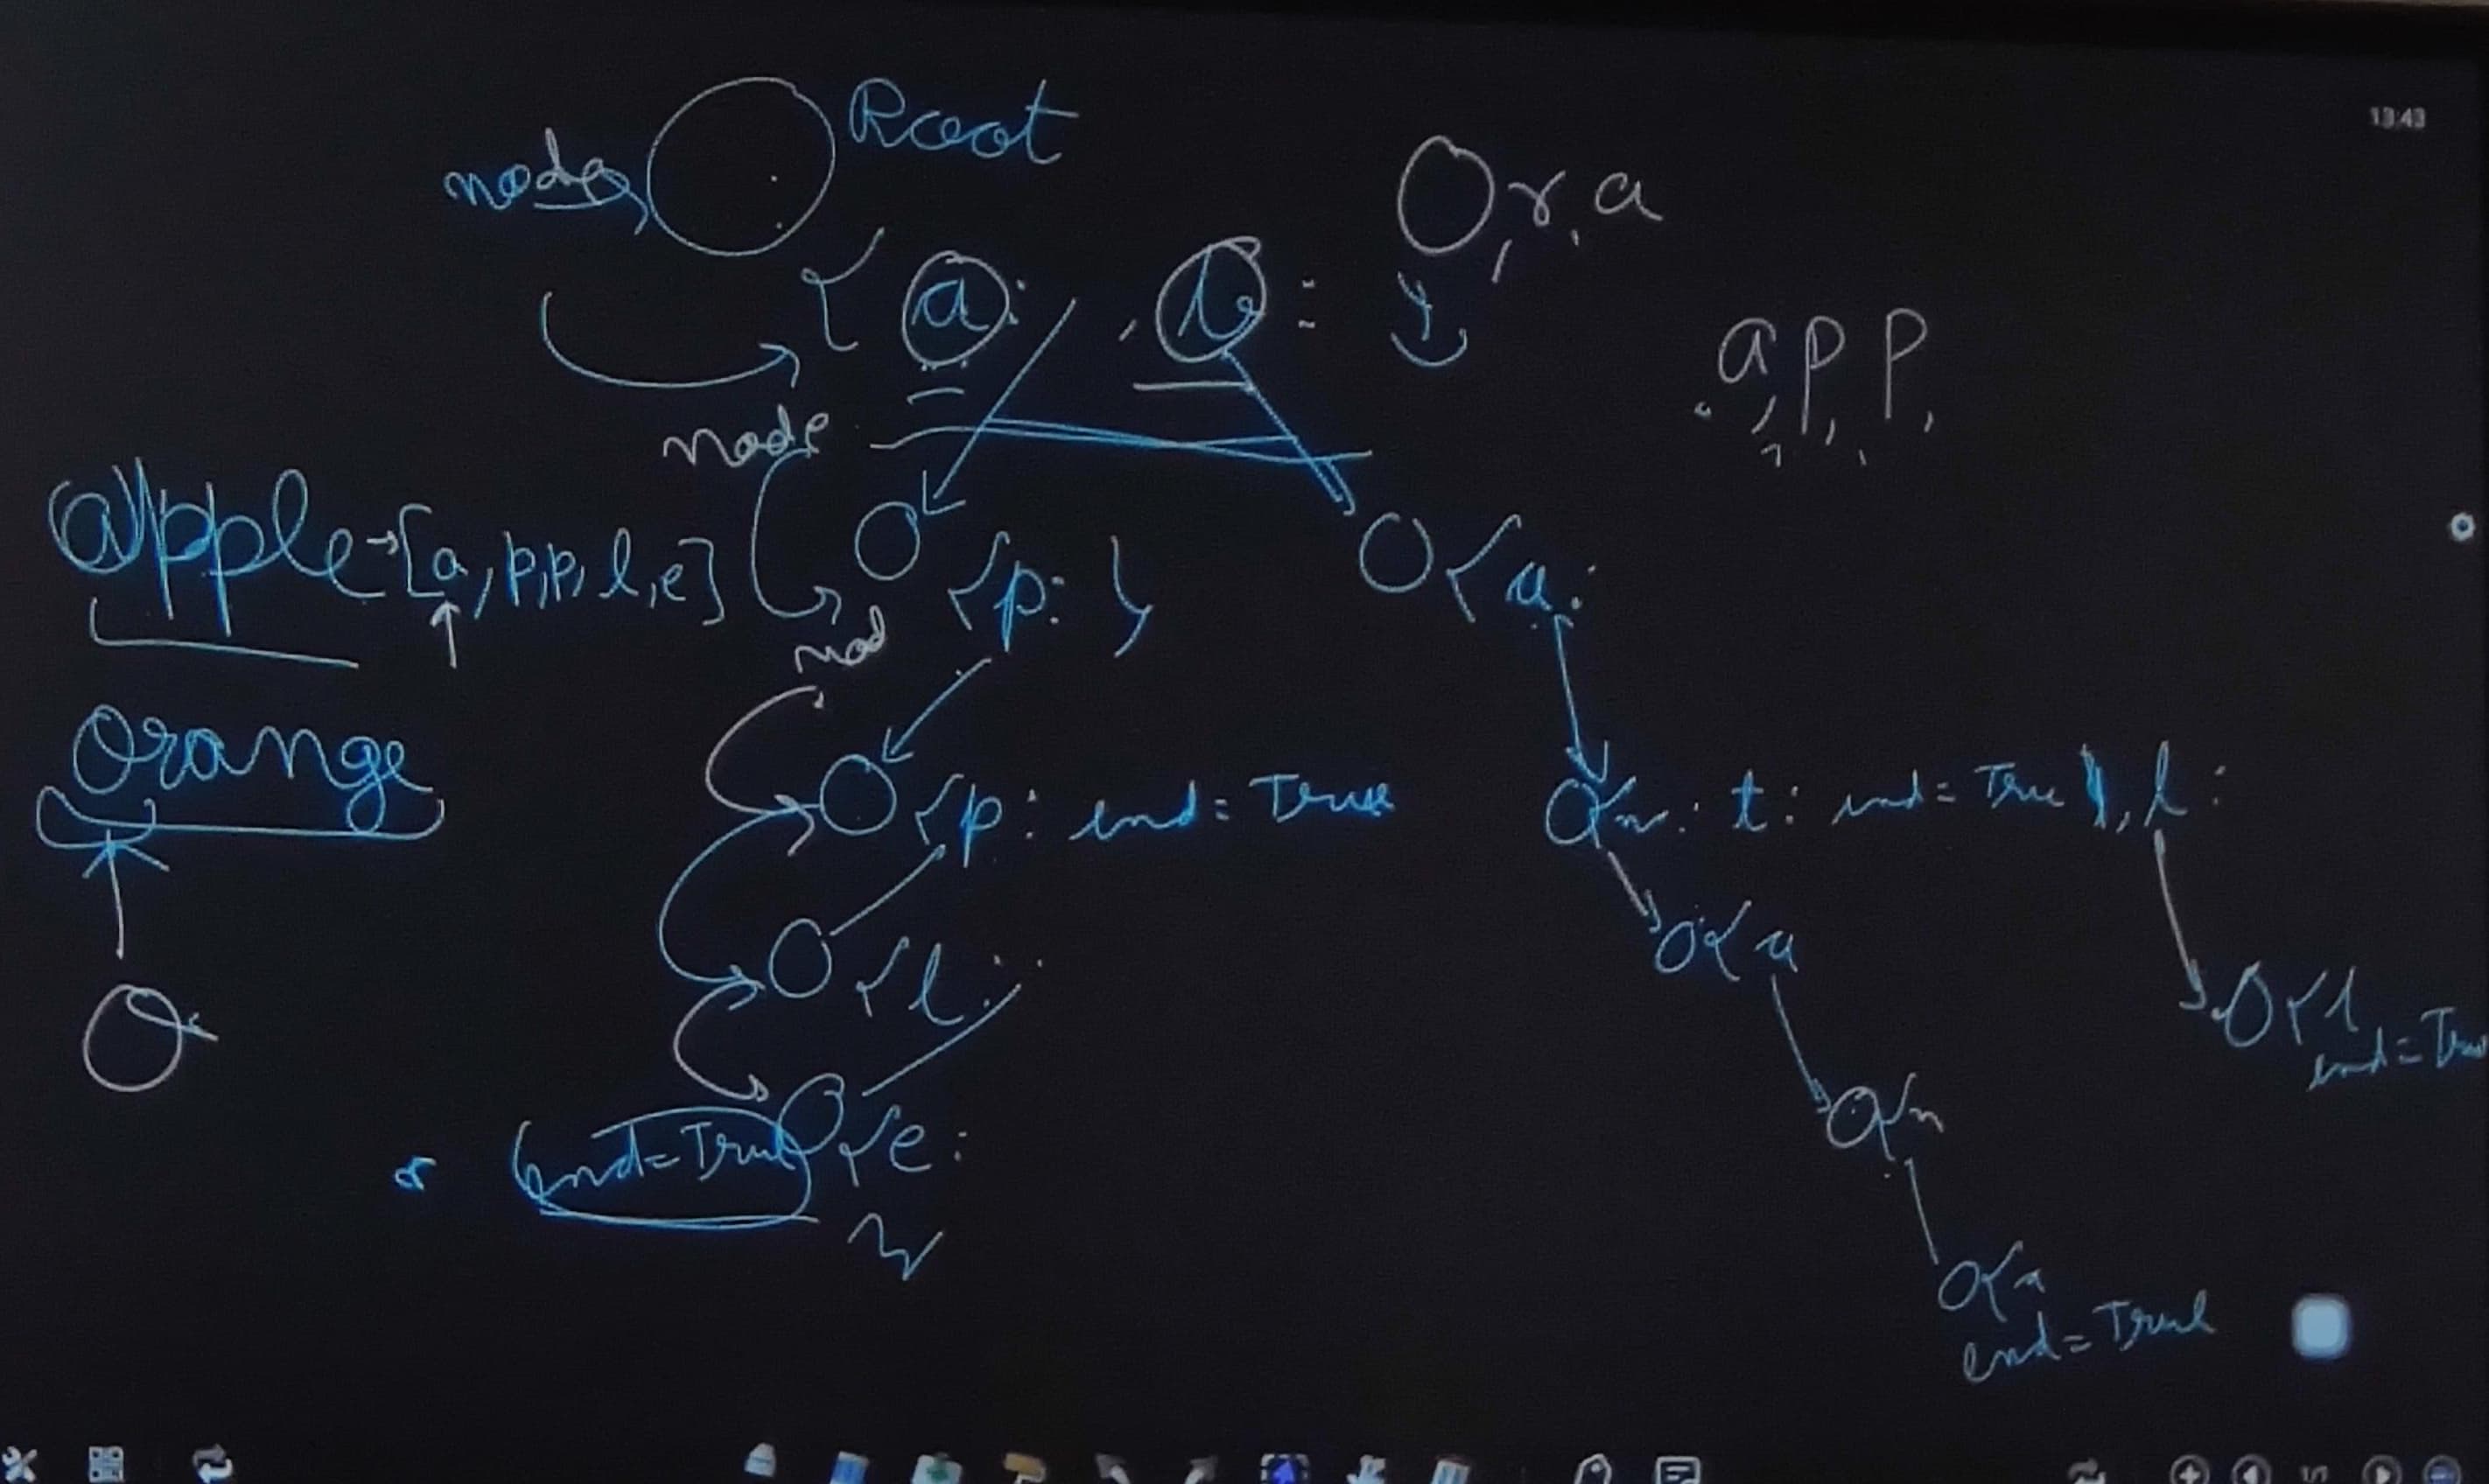 13:43
Root
node
O, r, a
{ a: , b: }
a, p, p,
node
apple → [a, p, p, l, e]
{p: }
{a:
nod
orange
{p: end = True
{n: t: end = True }, l:
{l:
{a
{l
end = True
end = True {e:
{n
{a
end = True